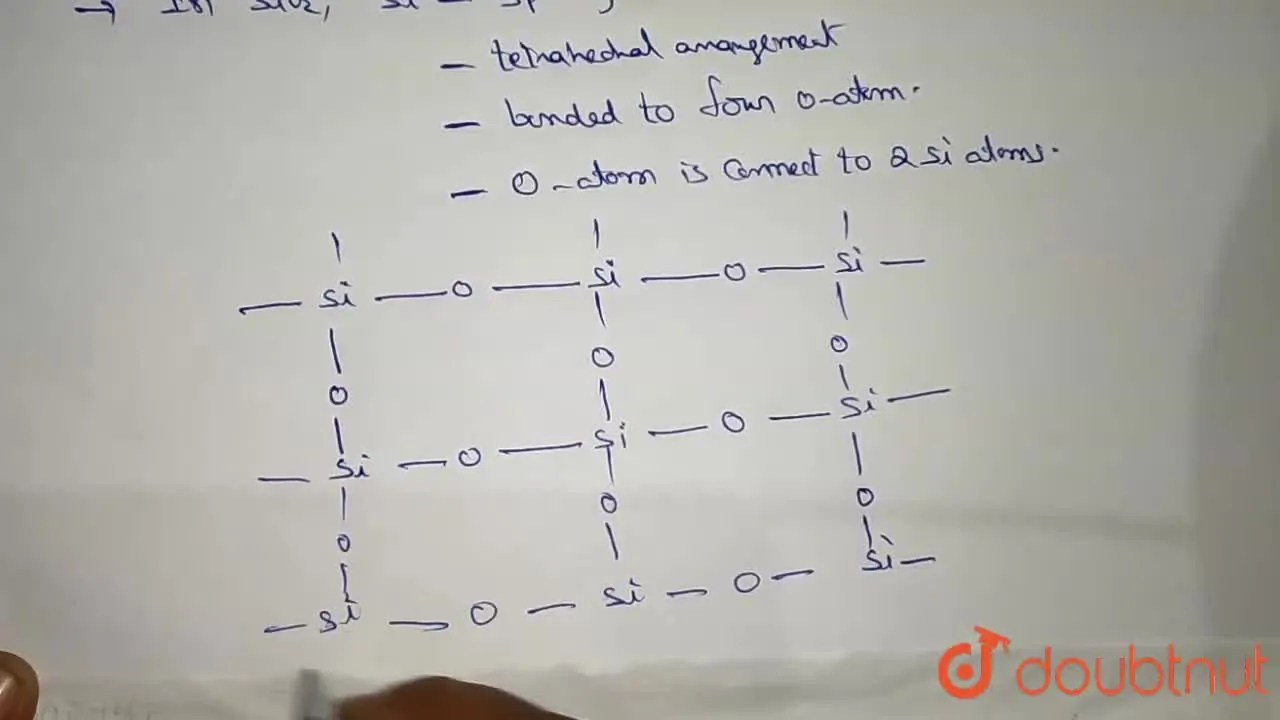 → In SiO2, Si - sp
- tetrahedral arrangement
- bonded to four O-atom.
- O-atom is connect to 2 Si atoms.
Si - O - Si - O - Si -
O O O
- Si - O - Si - O - Si -
O O O
- Si - O - Si - O - Si -
doubtnut